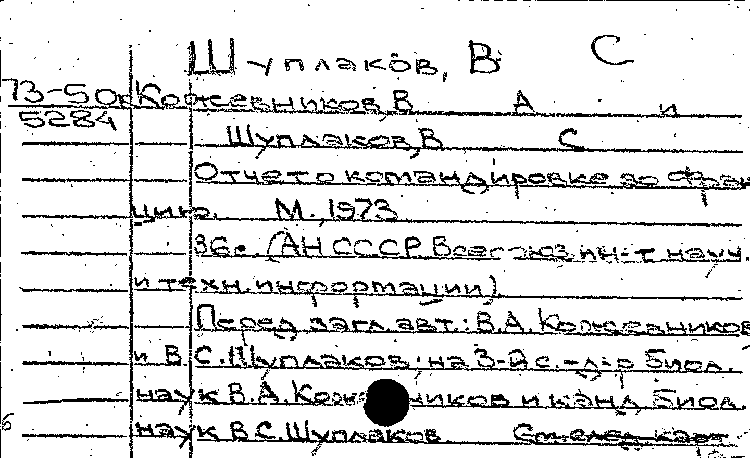 Шуплаков, В С
73-50к Кожевников, В А и
5284
Шуплаков, В С
Отчет о командировке во Фран
цию. М., 1973
36с. (АН СССР. Всесоюз. ин-т науч.
и техн. информации)
Перед загл. авт.: В.А. Кожевников
и В.С. Шуплаков; на 3-й с. - д-р биол.
наук В.А. Коже ников и канд. биол.
наук В.С. Шуплаков. См. след. карт.
6